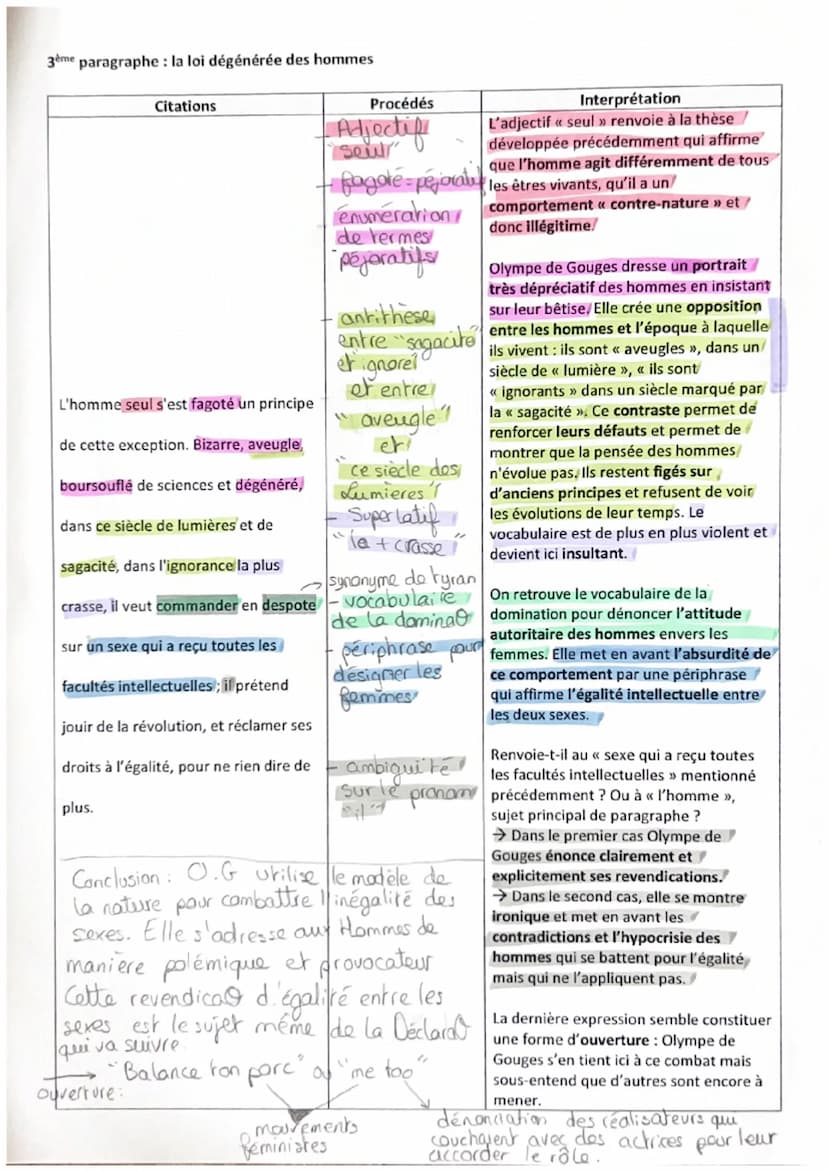 3ème paragraphe : la loi dégénérée des hommes
Citations
L'homme seul s'est fagoté un principe
de cette exception. Bizarre, aveugle,
boursouflé de sciences et dégénéré,
dans ce siècle de lumières et de
sagacité, dans l'ignorance la plus
crasse, il veut commander en despote
sur un sexe qui a reçu toutes les
facultés intellectuelles ; il prétend
jouir de la révolution, et réclamer ses
droits à l'égalité, pour ne rien dire de
plus.
Procédés
- Adjectif
"seul"
- fagoté = péjoratif
énumération
de termes
péjoratifs
- antithèse
entre "sagacité"
et ignore
et entre
"aveugle"
et
"ce siècle des
Lumières"
- Superlatif
"la + crasse"
→ synonyme de tyran
- vocabulaire
de la dominaθ
- périphrase pour
désigner les
femmes
- ambiguïté
sur le pronom
"il"
Interprétation
L'adjectif « seul » renvoie à la thèse
développée précédemment qui affirme
que l'homme agit différemment de tous
les êtres vivants, qu'il a un
comportement « contre-nature » et
donc illégitime.
Olympe de Gouges dresse un portrait
très dépréciatif des hommes en insistant
sur leur bêtise. Elle crée une opposition
entre les hommes et l'époque à laquelle
ils vivent : ils sont « aveugles », dans un
siècle de « lumière », « ils sont
« ignorants » dans un siècle marqué par
la « sagacité ». Ce contraste permet de
renforcer leurs défauts et permet de
montrer que la pensée des hommes
n'évolue pas. Ils restent figés sur
d'anciens principes et refusent de voir
les évolutions de leur temps. Le
vocabulaire est de plus en plus violent et
devient ici insultant.
On retrouve le vocabulaire de la
domination pour dénoncer l'attitude
autoritaire des hommes envers les
femmes. Elle met en avant l'absurdité de
ce comportement par une périphrase
qui affirme l'égalité intellectuelle entre
les deux sexes.
Renvoie-t-il au « sexe qui a reçu toutes
les facultés intellectuelles » mentionné
précédemment ? Ou à « l'homme »,
sujet principal de paragraphe ?
→ Dans le premier cas Olympe de
Gouges énonce clairement et
explicitement ses revendications.
→ Dans le second cas, elle se montre
ironique et met en avant les
contradictions et l'hypocrisie des
hommes qui se battent pour l'égalité
mais qui ne l'appliquent pas.
La dernière expression semble constituer
une forme d'ouverture : Olympe de
Gouges s'en tient ici à ce combat mais
sous-entend que d'autres sont encore à
mener.
Conclusion : O.G utilise le modèle de
la nature pour combattre l'inégalité des
sexes. Elle s'adresse aux Hommes de
manière polémique et provocateur
Cette revendicaθ d'égalité entre les
sexes est le sujet même de la Déclaraθ
qui va suivre.
→ "Balance ton porc" ou "me too"
ouverture :
mouvements
féministes
dénonciation des réalisateurs qui
couchaient avec des actrices pour leur
accorder le rôle.